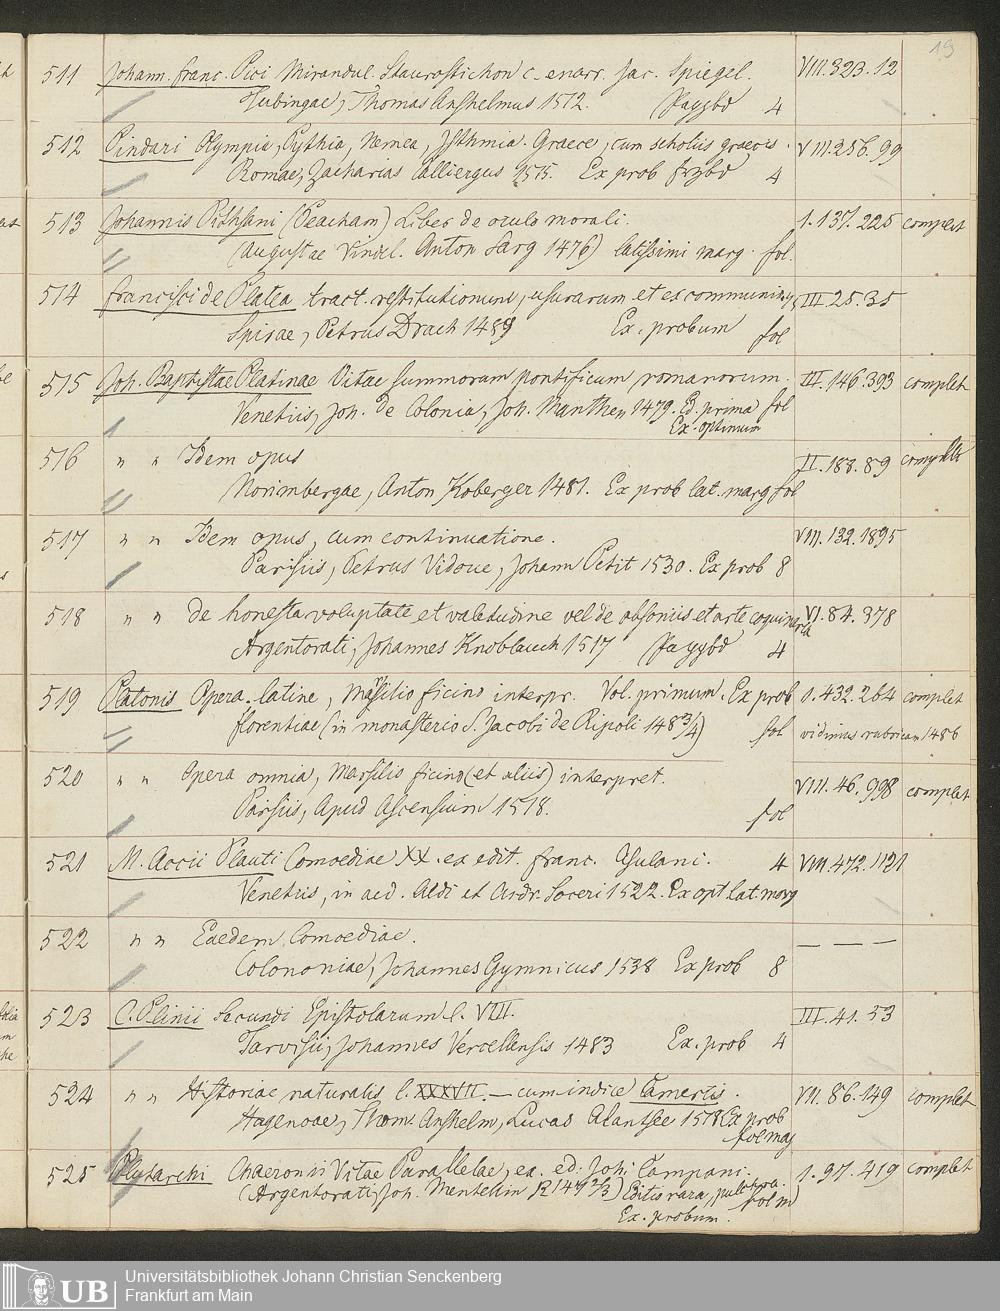 19
511 Johann. Franc. Pici Mirandul. Staurostichon c. enarr. Jac. Spiegel. VIII. 323. 12
Tubingae, Thomas Anshelmus 1512. 4
512 Pindari Olympia, Pythia, Nemea, Isthmia. Graece, cum scholiis graecis. VIII. 256. 99
Romae, Zacharias Calliergus 1515. Ex prob 4
513 Johannis Pithsani (Peacham) Liber de oculo morali. 1. 137. 225 complet
(Augustae Vindel. Anton Sorg 1476) latissimi marg. fol.
514 Francisci de Platea tract. restitutionum, usurarum et excommunin. III. 25. 35
Spirae, Petrus Drach 1489 Ex. probum fol
515 Joh. Baptistae Platinae Vitae summorum pontificum romanorum. III. 146. 393 complet
Venetiis, Joh. de Colonia, Joh. Manthen 1479. Ed. prima fol
Ex. optimum
516 " " Idem opus II. 188. 89 complet
Norimbergae, Anton Koberger 1481. Ex prob lat. marg fol
517 " " Idem opus, cum continuatione. VIII. 132. 1895
Parisiis, Petrus Vidoue, Johann Petit 1530. Ex prob 8
518 " " de honesta voluptate et valetudine vel de obsoniis et arte coquinaria VI. 84. 378
Argentorati, Johannes Knoblauch 1517 4
519 Platonis Opera. latine, Marsilio ficino interpr. Vol. primum. Ex prob 1. 432. 264 complet
florentiae (in monasterio S. Jacobi de Ripoli 148 3/4) fol vidimus rubricam 1486
520 " " Opera omnia, Marsilio ficino (et aliis) interpret. VIII. 46. 998 complet
Parisiis, Apud Ascensium 1518. fol
521 M. Accii Plauti Comoediae XX. ex edit. Franc. Asulani. 4 VIII. 472. 1121
Venetiis, in aed. Aldi et Andr. Soceri 1522. Ex opt lat. marg
522 " " Eaedem Comoediae. — — —
Colononiae, Johannes Gymnicus 1538 Ex prob 8
523 C. Plinii Secundi Epistolarum l. VIII. III. 41. 53
Tarvisii, Johannes Vercellensis 1483 Ex. prob 4
524 " " Historiae naturalis l. XXXVII. — cum indice Camertis. VII. 86. 149 complet
Hagenoae, Thom. Anshelm, Lucas Alantsee 1518 Ex prob
fol maj
525 Plutarchi Chaeronii Vitae Parallelae, ex. ed. Joh. Campani. 1. 97. 419 complet
(Argentorati, Joh. Mentelin R 147 2/3) Editio rara, pulchra. fol m)
Ex. probum.
UB Universitätsbibliothek Johann Christian Senckenberg
Frankfurt am Main